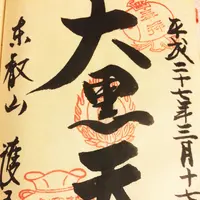 平成二十七年三月十七
大黒天
東叡山
護